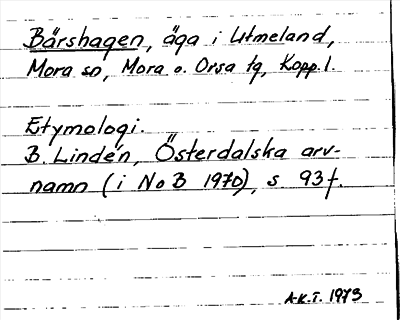 Bärshagen, äga i Utmeland,
Mora sn, Mora o. Orsa tg, Kopp. l.
Etymologi.
B. Lindén, Österdalska arv-
namn (i NoB 1970), s. 93 f.
A-K.T. 1973